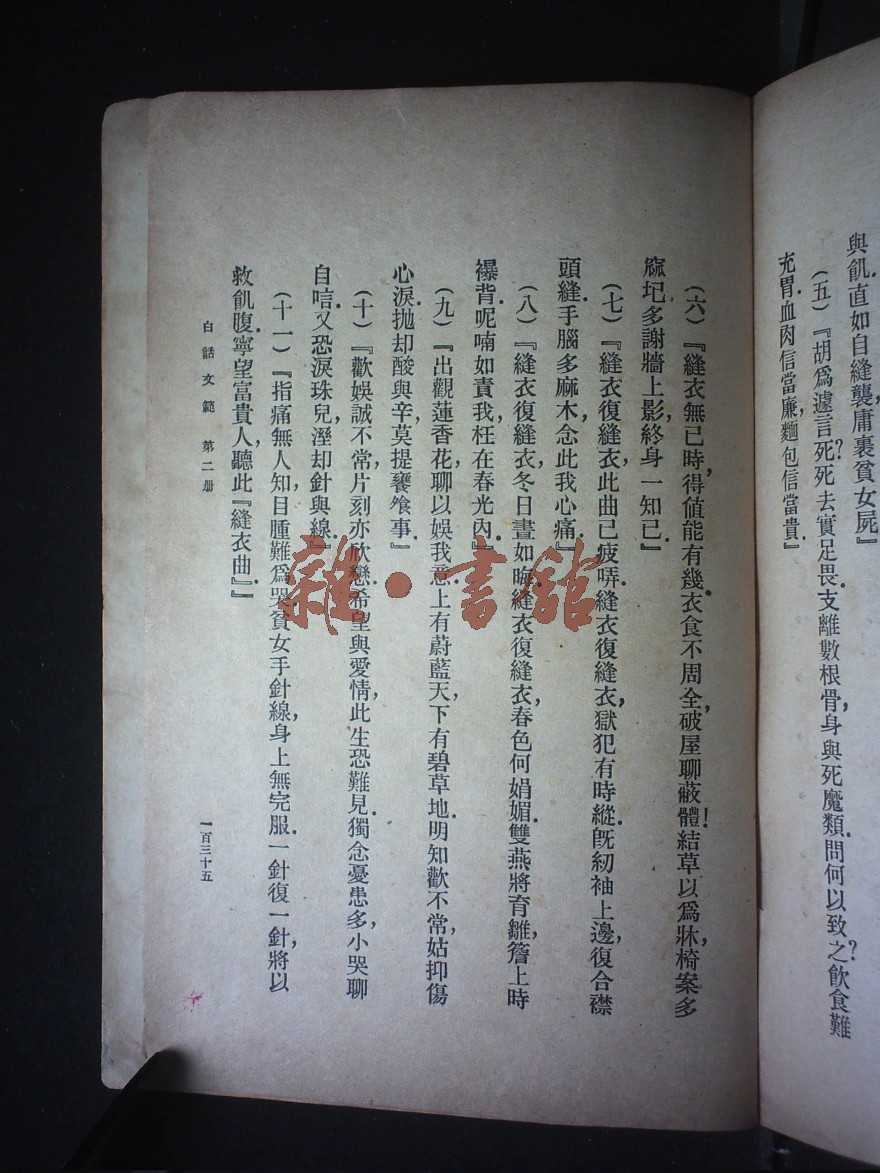 與飢.直如自縫襲,庸裏貧女屍』
(五)『胡爲遽言死?死去實足畏.支離數根骨,身與死魔類.問何以致之?飲食難
充胃.血肉信當廉,麵包信當貴.』
(六)『縫衣無已時,得値能有幾.衣食不周全,破屋聊蔽體!結草以爲牀,椅案多
窳圮.多謝牆上影,終身一知己.』
(七)『縫衣復縫衣,此曲已疲哢.縫衣復縫衣,獄犯有時縱.旣紉袖上邊,復合襟
頭縫.手腦多麻木,念此我心痛.』
(八)『縫衣復縫衣,冬日晝如晦.縫衣復縫衣,春色何娟媚.雙燕將育雛,簷上時
襮背.呢喃如責我,枉在春光內.』
(九)『出觀蓮香花,聊以娛我意.上有蔚藍天,下有碧草地.明知歡不常,姑抑傷
心淚.拋却酸與辛,莫提饔飧事.』
(十)『歡娛誠不常,片刻亦欣戀.希望與愛情,此生恐難見.獨念憂患多,小哭聊
自唁.又恐淚珠兒,溼却針與線.』
(十一)『指痛無人知,目腫難爲哭.貧女手針線,身上無完服.一針復一針,將以
救飢腹.寧望富貴人,聽此『縫衣曲.』』
白話文範 第二册
一百三十五
雜·書館